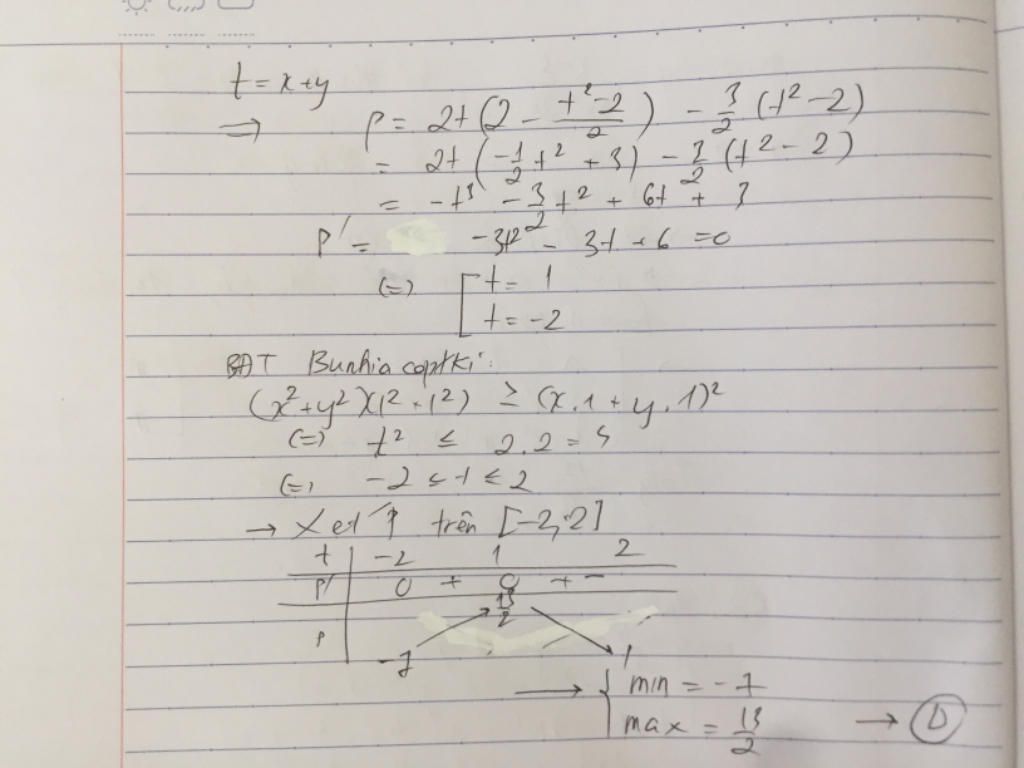 t = x+y
=> P = 2t(2 - (t²-2)/2) - 3/2 (t²-2)
= 2t(-1/2 t² + 3) - 3/2 (t² - 2)
= -t³ - 3/2 t² + 6t + 3
P' = -3t² - 3t + 6 = 0
(=) [ t = 1
t = -2
BĐT Bunhia coptki:
(x²+y²)(1²+1²) ≥ (x.1 + y.1)²
(=) t² ≤ 2.2 = 4
(=) -2 ≤ t ≤ 2
→ Xét P trên [-2, 2]
t | -2 1 2
P' | 0 + 0 + -
13/2
P | -7 1
→ { min = -7
max = 13/2 → D